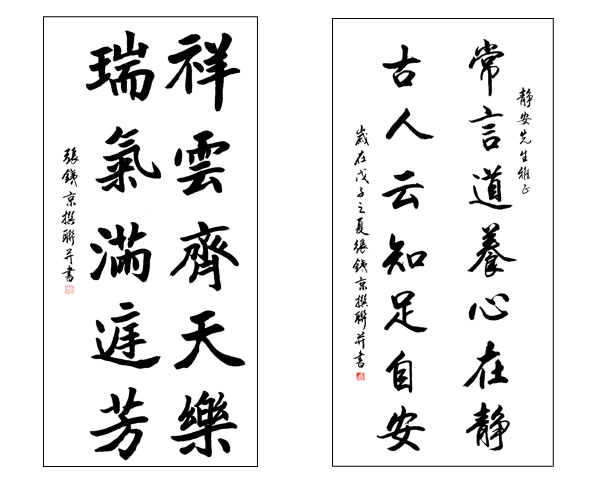 祥雲齊天樂
瑞氣滿庭芳
張鐵京撰聯并書
靜安先生雅正
常言道養心在靜
古人云知足自安
歲在戊子之夏張鐵京撰聯并書